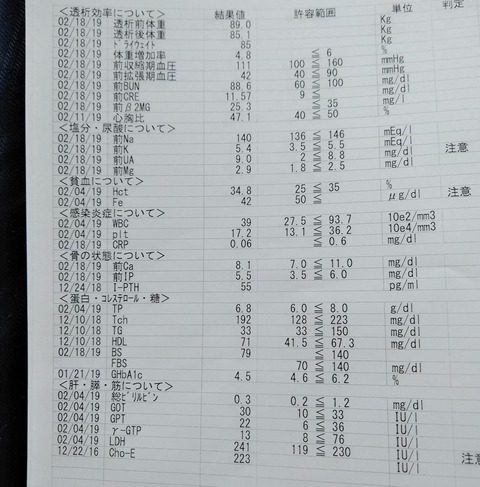 ＜透析効率について＞ 結果値 許容範囲 単位 判定
02/18/19 透析前体重 89.0 Kg
02/18/19 透析後体重 85.1 Kg
02/18/19 ﾄﾞﾗｲｳｪｲﾄ 85 Kg
02/18/19 体重増加率 4.8 ≦ 6 %
02/18/19 前収縮期血圧 111 100 ≦ 160 mmHg
02/18/19 前拡張期血圧 42 40 ≦ 90 mmHg
02/18/19 前BUN 88.6 60 ≦ 100 mg/dl
02/18/19 前CRE 11.57 9 ≦ mg/dl
02/18/19 前β2MG 25.3 ≦ 35 mg/l
02/11/19 心胸比 47.1 40 ≦ 50 %
＜塩分・尿酸について＞
02/18/19 前Na 140 136 ≦ 146 mEq/l
02/18/19 前K 5.4 3.5 ≦ 5.5 mEq/l
02/18/19 前UA 9.0 2 ≦ 8.8 mg/dl 注意
02/18/19 前Mg 2.9 1.8 ≦ 2.5 mg/dl
＜貧血について＞
02/04/19 Hct 34.8 25 ≦ 35 %
02/04/19 Fe 42 50 ≦ μg/dl 注意
＜感染炎症について＞
02/04/19 WBC 39 27.5 ≦ 93.7 10e2/mm3
02/04/19 plt 17.2 13.1 ≦ 36.2 10e4/mm3
02/18/19 CRP 0.06 ≦ 0.6 mg/dl
＜骨の状態について＞
02/18/19 前Ca 8.1 7.0 ≦ 11.0 mg/dl
02/18/19 前IP 5.5 3.5 ≦ 6.0 mg/dl
12/24/18 I-PTH 55 pg/ml
＜蛋白・ｺﾚｽﾃﾛｰﾙ・糖＞
02/04/19 TP 6.8 6.0 ≦ 8.0 g/dl
12/10/18 Tch 192 128 ≦ 223 mg/dl
12/10/18 TG 33 33 ≦ 150 mg/dl
12/10/18 HDL 71 41.5 ≦ 67.3 mg/dl
02/18/19 BS 79 ≦ 140 mg/dl
FBS 70 ≦ 140 mg/dl
01/21/19 GHbA1c 4.5 4.6 ≦ 6.2 %
＜肝・膵・筋について＞
02/04/19 総ﾋﾞﾘﾙﾋﾞﾝ 0.3 0.2 ≦ 1.2 mg/dl
02/04/19 GOT 30 10 ≦ 33 IU/l
02/04/19 GPT 22 6 ≦ 36 IU/l
02/04/19 γ-GTP 13 8 ≦ 76 IU/l
02/04/19 LDH 241 119 ≦ 230 IU/l 注意
12/22/16 Cho-E 223 IU/l